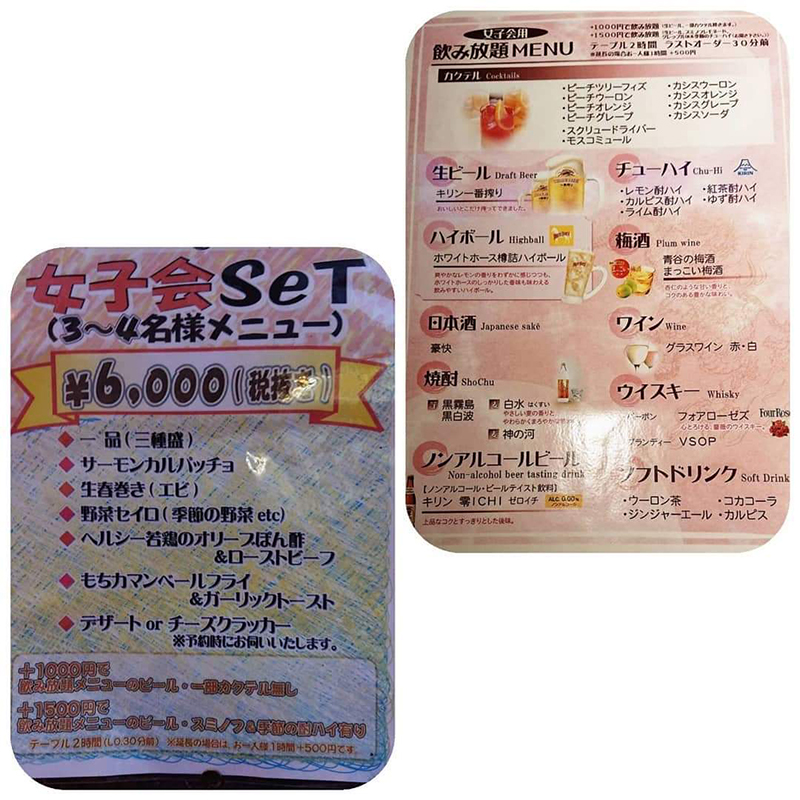 女子会SeT
(3〜4名様メニュー)
¥6,000(税抜き)
一品(三種盛)
サーモンカルパッチョ
生春巻き(エビ)
野菜セイロ(季節の野菜 etc)
ヘルシー若鶏のオリーブぽん酢
&ローストビーフ
もちカマンベールフライ
&ガーリックトースト
デザート or チーズクラッカー
※予約時にお伺いいたします。
+1000円で
飲み放題メニューのビール・一部カクテル無し
+1500円で
飲み放題メニューのビール・スミノフ&季節の酎ハイ有り
テーブル2時間(L0.30分前) ※延長の場合は、お一人様1時間+500円です。
女子会用
飲み放題MENU
+1000円で飲み放題
+1500円で飲み放題
テーブル2時間 ラストオーダー30分前
※延長の場合お一人様1時間+500円
カクテル Cocktails
・ピーチツリーフィズ
・ピーチウーロン
・ピーチオレンジ
・ピーチグレープ
・スクリュードライバー
・モスコミュール
・カシスウーロン
・カシスオレンジ
・カシスグレープ
・カシスソーダ
生ビール Draft Beer
キリン一番搾り
おいしいとこだけ搾ってできました。
チューハイ Chu-Hi
KIRIN
・レモン酎ハイ
・カルピス酎ハイ
・ライム酎ハイ
・紅茶酎ハイ
・ゆず酎ハイ
ハイボール Highball
ホワイトホース樽詰ハイボール
爽やかなレモンの香りをわずかに感じつつも、
ホワイトホースのしっかりした香味も味わえる
飲みやすいハイボール。
梅酒 Plum wine
青谷の梅酒
まっこい梅酒
杏仁のような甘い香りと
コクのある豊かな味わい。
日本酒 Japanese saké
豪快
ワイン Wine
グラスワイン 赤・白
焼酎 ShoChu
黒霧島
黒白波
白水 はくすい
やさしい麦の香りと、
やわらかくまろやかな
神の河
ウイスキー Whisky
バーボン フォアローゼズ
FourRose
心とろける、薔薇のウイスキー。
ブランディー VSOP
ノンアルコールビール
Non-alcohol beer tasting drink
【ノンアルコール・ビールテイスト飲料】
キリン 零ICHI ゼロイチ
ALC.0.00%
ノンアルコール
上品なコクとすっきりとした後味。
ソフトドリンク Soft Drink
・ウーロン茶
・ジンジャーエール
・コカコーラ
・カルピス